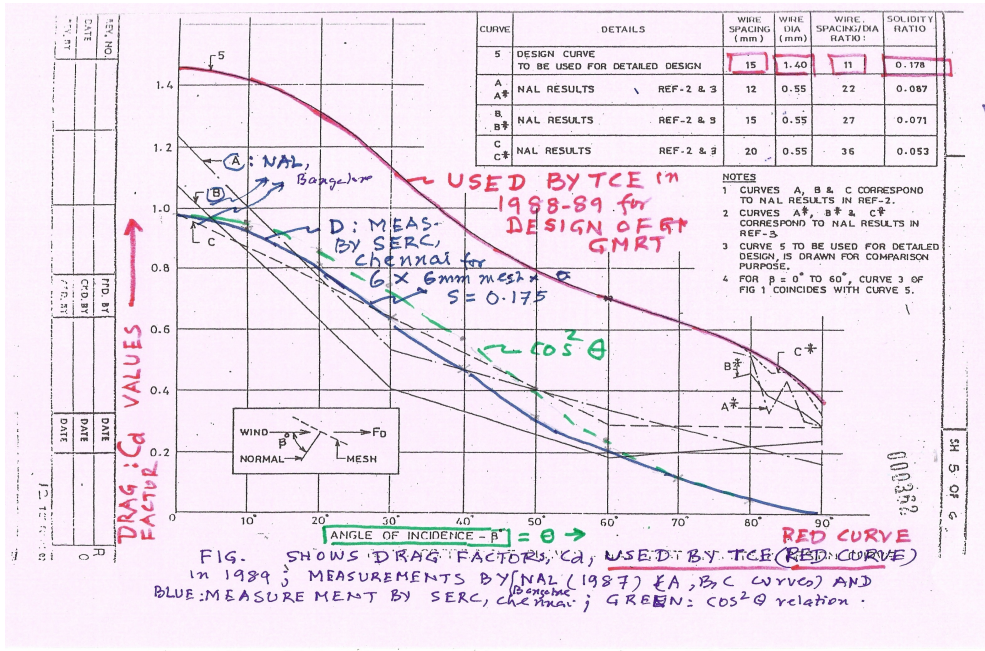 REV. NO.
DATE
CURVE
DETAILS
WIRE SPACING (mm)
WIRE DIA (mm)
WIRE, SPACING/DIA RATIO:
SOLIDITY RATIO
5 DESIGN CURVE
TO BE USED FOR DETAILED DESIGN 15 1.40 11 0.178
A
A* NAL RESULTS REF-2 & 3 12 0.55 22 0.087
B,
B* NAL RESULTS REF-2 & 3 15 0.55 27 0.071
C
C* NAL RESULTS REF-2 & 3 20 0.55 36 0.053
NOTES
1 CURVES A, B & C CORRESPOND
TO NAL RESULTS IN REF-2.
2 CURVES A*, B* & C*
CORRESPOND TO NAL RESULTS IN
REF-3.
3 CURVE 5 TO BE USED FOR DETAILED
DESIGN, IS DRAWN FOR COMPARISON
PURPOSE.
4 FOR β = 0° TO 60°, CURVE 3 OF
FIG 1 COINCIDES WITH CURVE 5.
5
1.4
1.2
1.0
0.8
0.6
0.4
0.2
A : NAL,
Bangalore
B
C
USED BY TCE in
1988-89 for
DESIGN OF
GMRT
D: MEAS-
BY SERC,
Chennai for
6 X 6mm mesh
S = 0.175
cos² θ
B*
C*
A*
WIND
β°
FD
NORMAL
MESH
DRAG : Cd VALUES
FACTOR
CKD. BY
DATE
DATE
DATE
SH 5 OF 6
0 10° 20° 30° 40° 50° 60° 70° 80° 90°
ANGLE OF INCIDENCE - β° = θ →
RED CURVE
FIG. SHOWS DRAG FACTORS, Cd, USED BY TCE (RED CURVE)
in 1989 ; MEASUREMENTS BY NAL (1987) (A, B, C curves) AND
Bangalore
BLUE: MEASUREMENT BY SERC, Chennai ; GREEN: COS² θ relation .